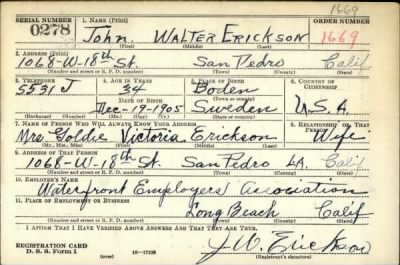 1669
SERIAL NUMBER 1. NAME (Print) ORDER NUMBER
0278 John WALTER ERICKSON 1669
(First) (Middle) (Last)
2. ADDRESS (Print)
1068-W-18th St. San Pedro Calif
(Number and street or R. F. D. number) (Town) (County) (State)
3. TELEPHONE 4. AGE IN YEARS 5. PLACE OF BIRTH 6. COUNTRY OF CITIZENSHIP
5531 J 34 Boden
DATE OF BIRTH (Town or county)
Dec-19-1905 Sweden U.S.A
(Exchange) (Number) (Mo.) (Day) (Yr.) (State or country)
7. NAME OF PERSON WHO WILL ALWAYS KNOW YOUR ADDRESS 8. RELATIONSHIP OF THAT PERSON
Mrs Goldie Victoria Erickson Wife
(Mr., Mrs., Miss) (First) (Middle) (Last)
9. ADDRESS OF THAT PERSON
1068-W-18th St. San Pedro LA. Calif
(Number and street or R. F. D. number) (Town) (County) (State)
10. EMPLOYER'S NAME
Waterfront Employers Association
11. PLACE OF EMPLOYMENT OR BUSINESS
Long Beach Calif
(Number and street or R. F. D. number) (Town) (County) (State)
I AFFIRM THAT I HAVE VERIFIED ABOVE ANSWERS AND THAT THEY ARE TRUE.
REGISTRATION CARD J. W. Erickson
D. S. S. Form 1 (over) (Registrant's signature)